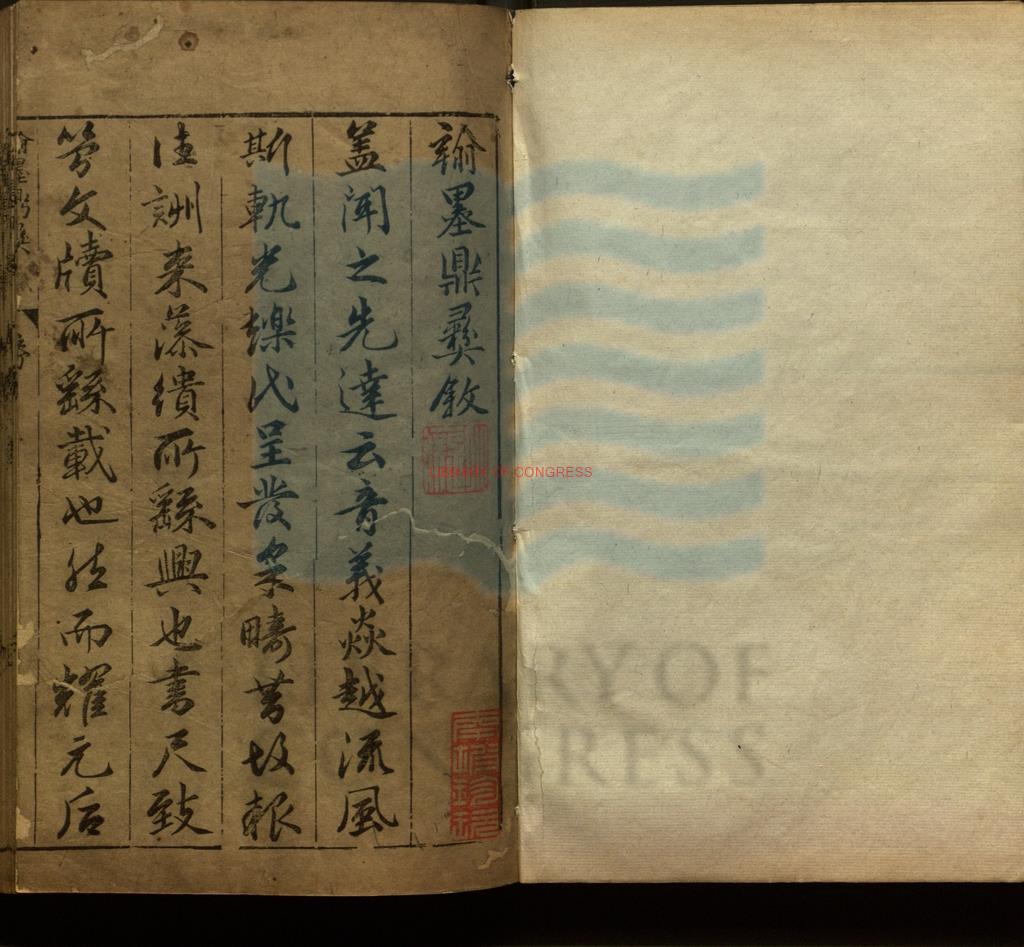 翰墨鼎彝敘
蓋聞之先達云音義焱越流風
斯軌光爍代呈發疇昔故報
訓來藻繢所繇興也書尺致
勞文牘所繇載也然而耀元后
LIBRARY OF CONGRESS
RY OF
RESS